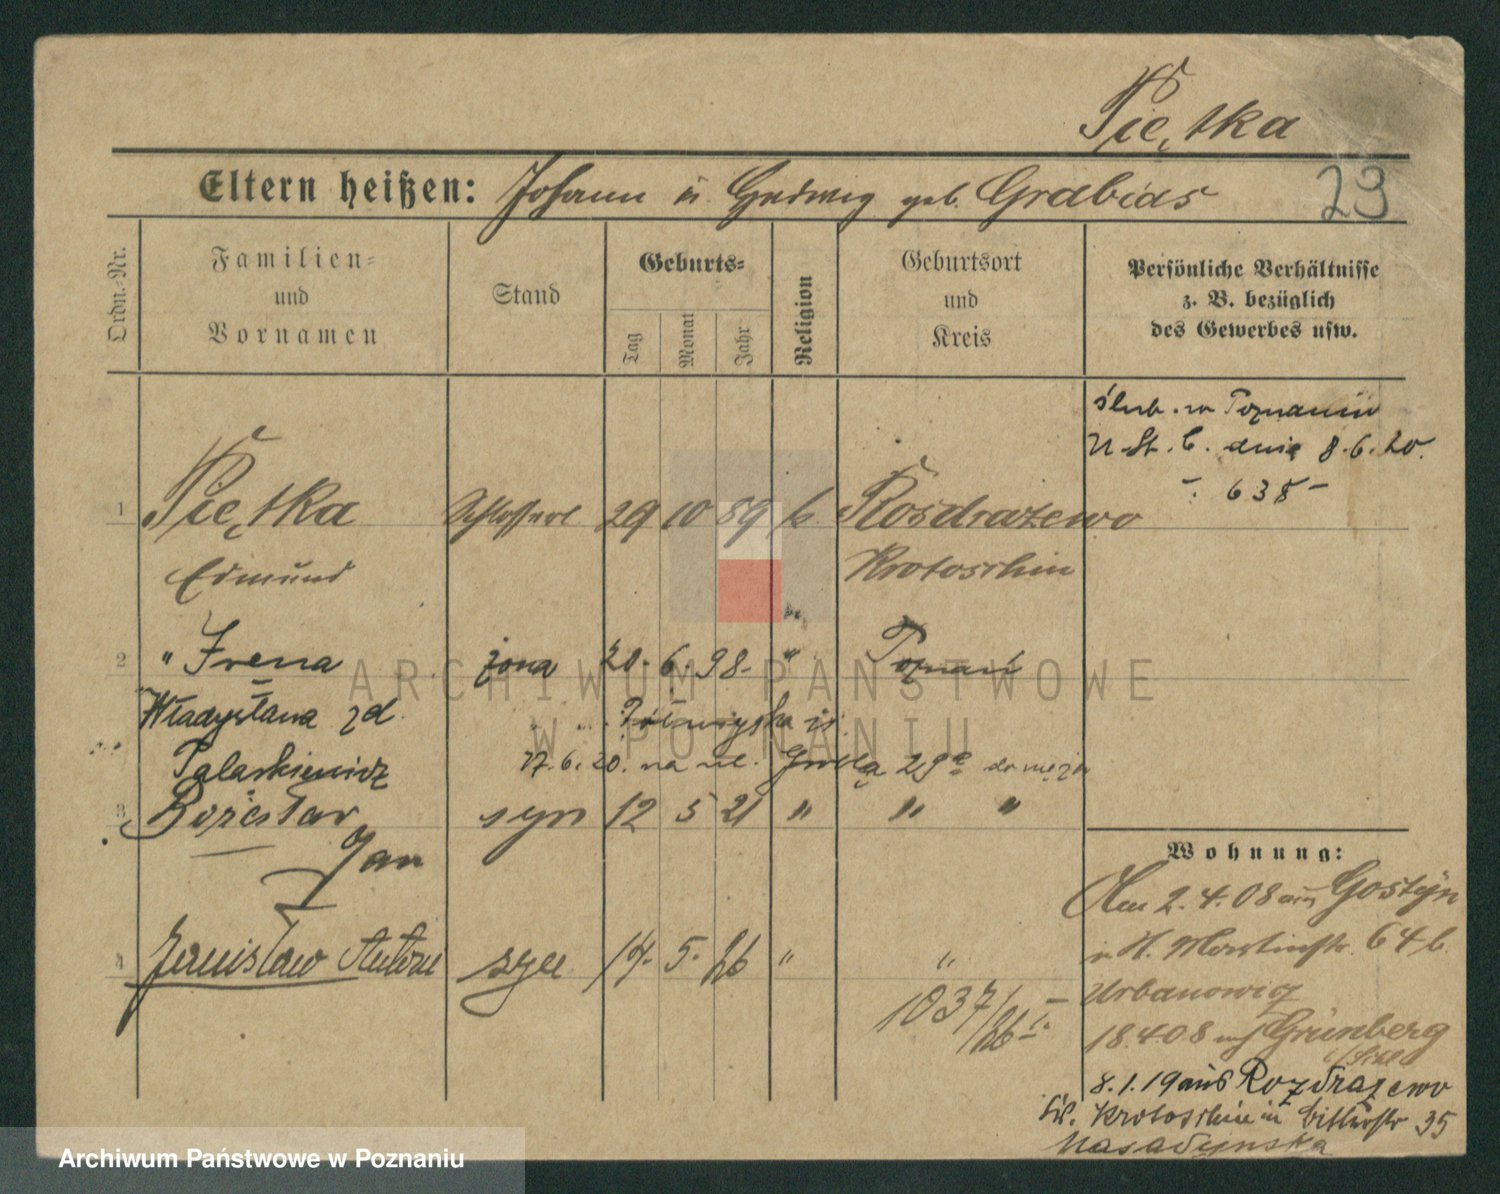 Piętka
Eltern heißen: Johann u. Hedwig geb. Grabias
23
Ordn.-Nr.
Familien-
und
Vornamen
Stand
Geburts-
Tag
Monat
Jahr
Religion
Geburtsort
und
Kreis
Persönliche Verhältnisse
z. B. bezüglich
des Gewerbes usw.
ślub. w Poznaniu
U. St. C. dnia 8.6.20.
638
1 Piętka Schlosserl. 29 10 89 k Rosdrazewo
Edmund Krotoschin
2 " Irena żona 20. 6. 98. " Poznań
Władysława zd.
Palaskiewicz 17.6.20. na ul. 29a do męża
3 Bożesław syn 12 5 21 " " "
Jan
4 Janisław Antoni syn 14. 5. 26 " "
1037/26
Wohnung:
Am 2.4.08 aus Gostyn
n. H. Martinstr. 64 b.
Urbanowicz
18.4.08 nach Grünberg
8.1.19 aus Rozdrazewo
Kr. Krotoschin in Bitterstr 35
Nasadynska
ARCHIWUM PAŃSTWOWE
W POZNANIU
Archiwum Państwowe w Poznaniu